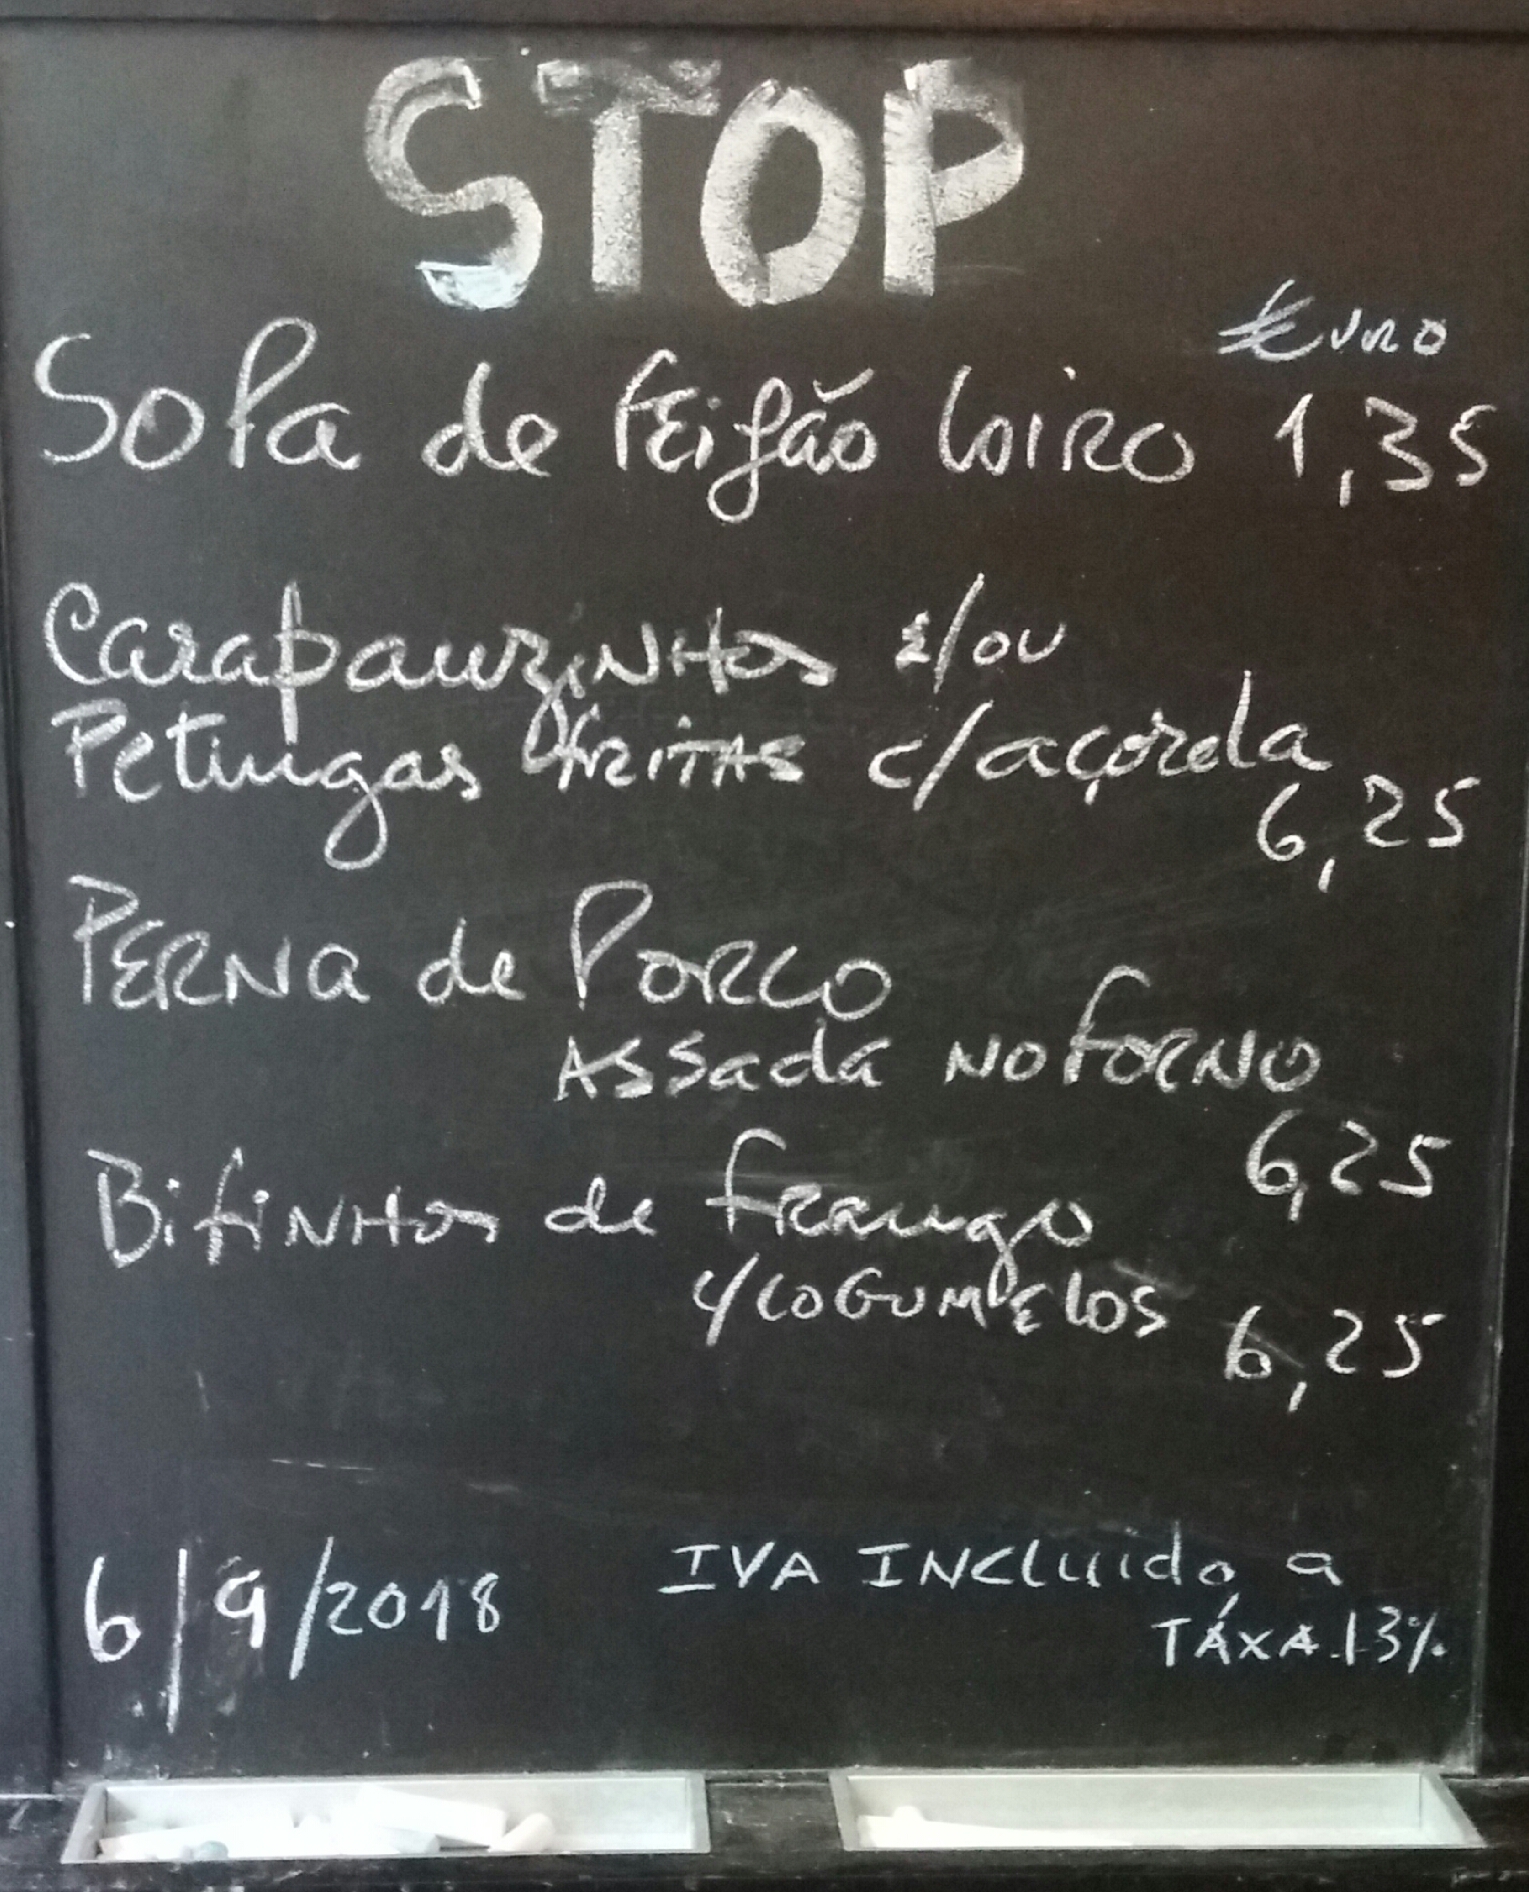 STOP
€uro
Sopa de Feijão loiro 1,35
Carapauzinhos e/ou
Petingas fritas c/açorda
6,25
PERNA de PORCO
ASSada NO FORNO
6,25
BifiNHos de frango
c/COGUMELOS 6,25
6/9/2018 IVA INCLuido, a
TÁXA 13%